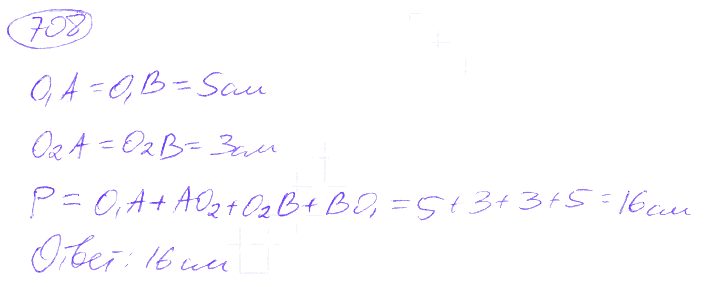 708
O₁A = O₁B = 5см
O₂A = O₂B = 3см
P = O₁A + AO₂ + O₂B + BO₁ = 5 + 3 + 3 + 5 = 16см
Ответ: 16см